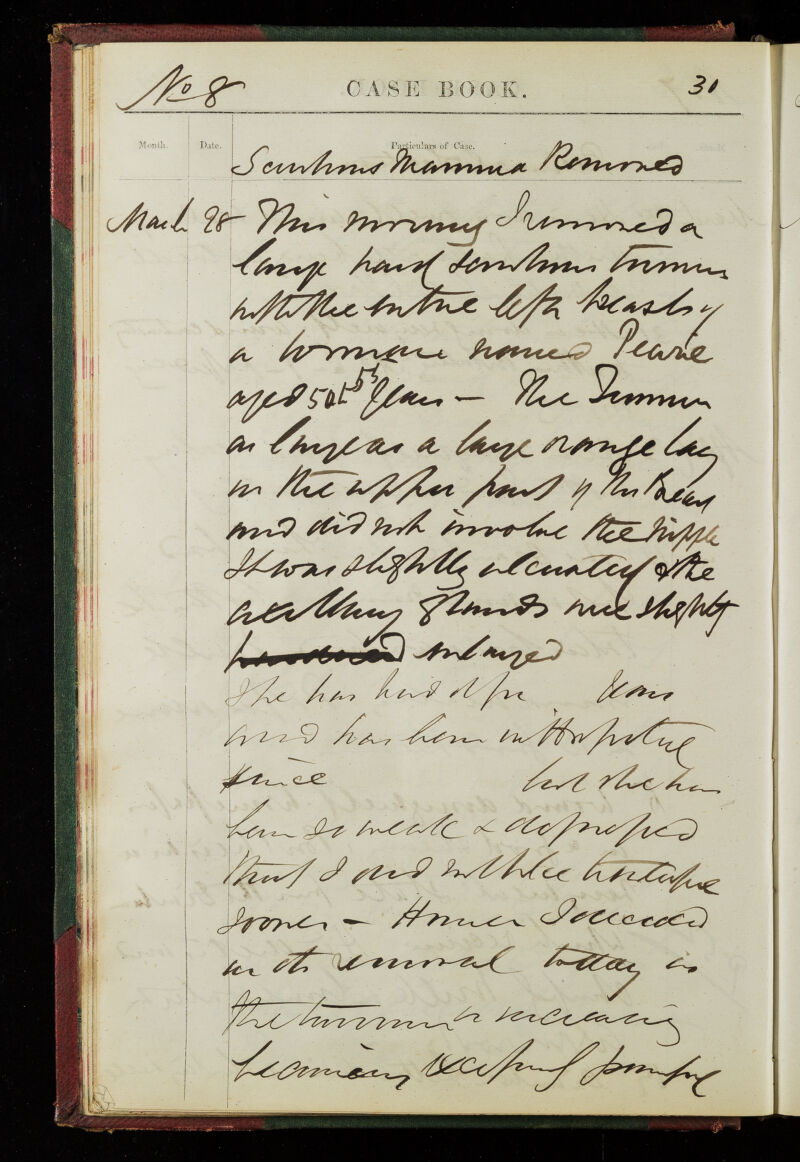 No 8 CASE BOOK. 31
Month. Date. Particulars of Case.
Scirrhous Mamma Removed
March 28 This morning I removed a
large hard scirrhous tumour
with the entire left breast of
a woman named Pearce
aged 50 55 years — The Tumour
as large as a large orange lay
in the upper part of the Breast
and did not involve the nipple
It was slightly ulcerated & the
axillary glands were slightly
hardened enlarged
She has had it for years
and has been in Hospital
since but she has
been so weak & depressed
that I did not like to interfere
sooner — However I decided
on its removal today as
the tumour is increasing
becoming painful